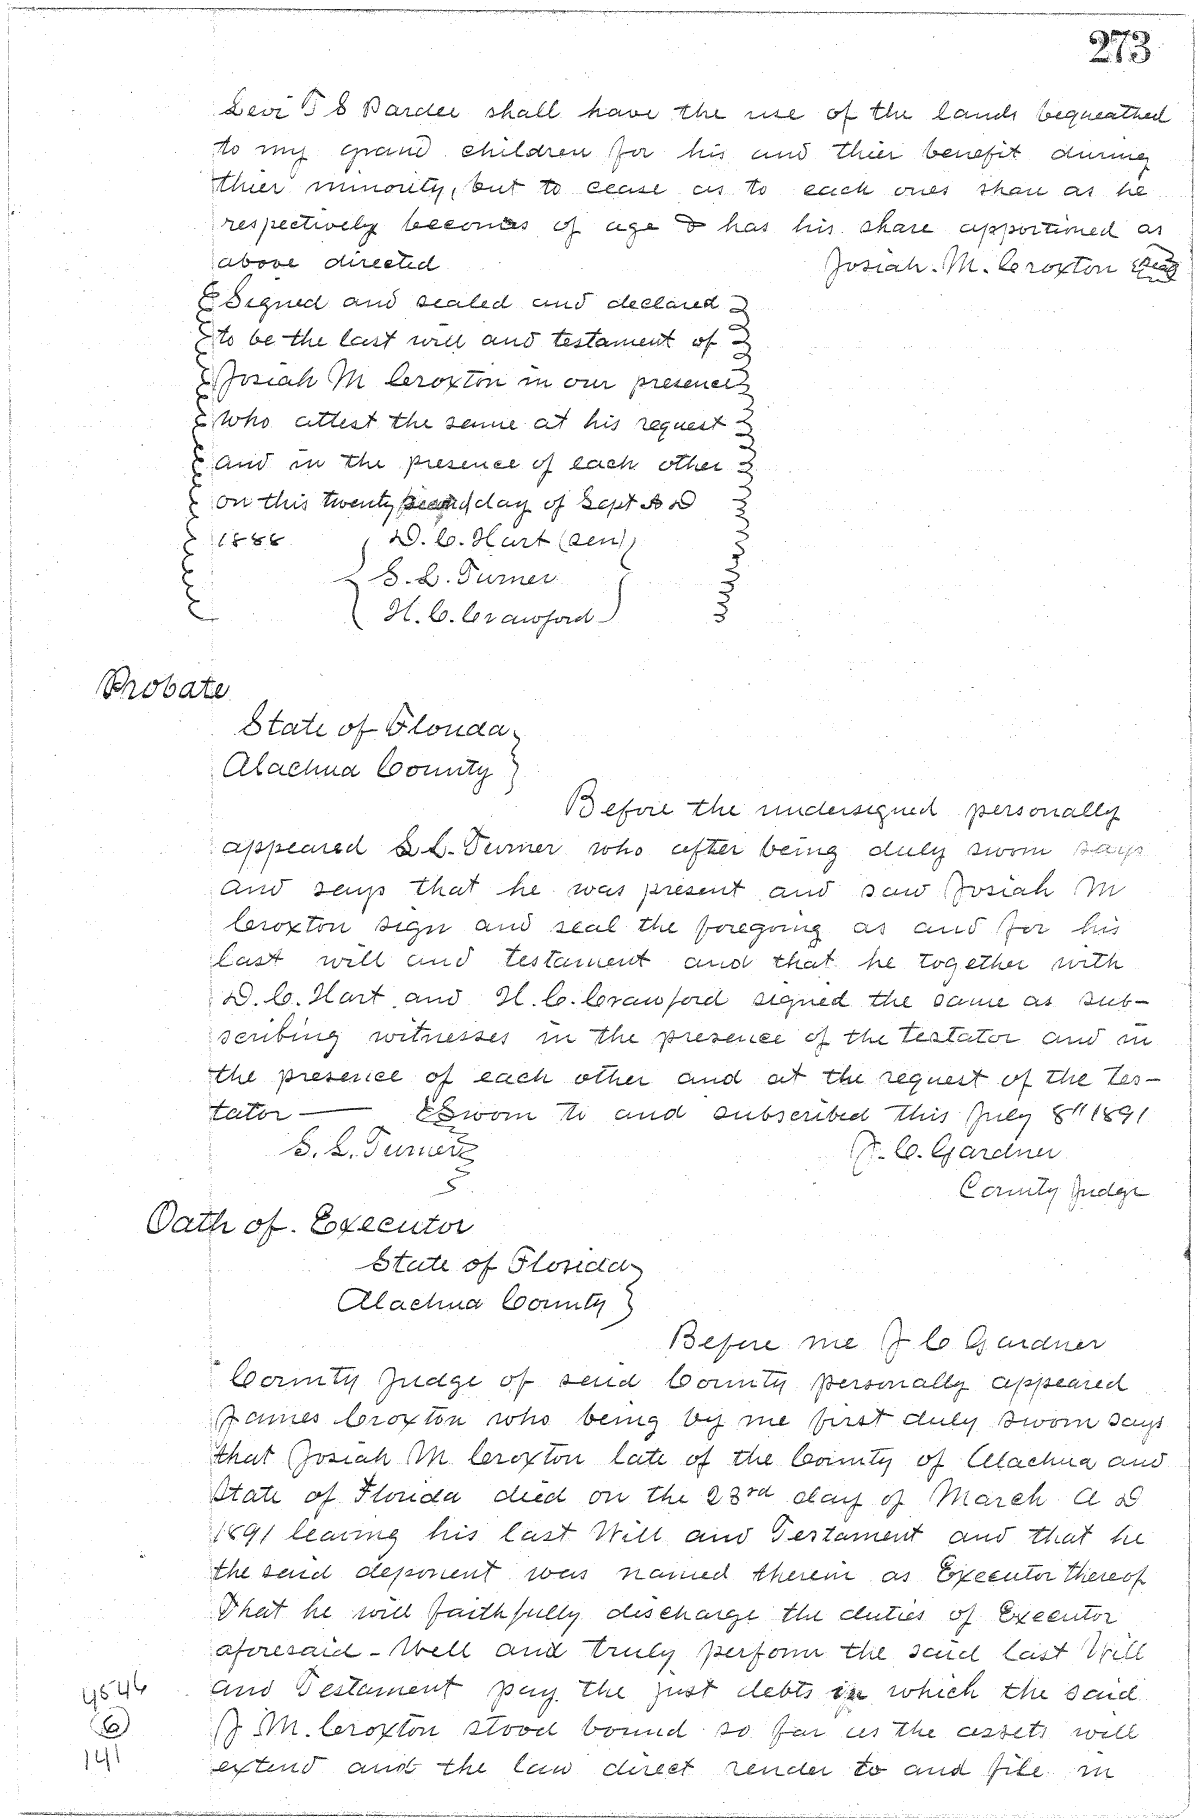 273
Levi T S Pardee shall have the use of the lands bequeathed
to my grand children for his and thier benefit during
thier minority, but to cease as to each ones shar as he
respectively becomes of age & has his share apportioned as
above directed Josiah. M. Croxton Seal
Signed and sealed and declared
to be the last will and testament of
Josiah M Croxton in our presence
who attest the same at his request
and in the presence of each other
on this twenty second day of Sept A D
1888 D. C. Hart (sen)
S. L. Turner
H. C. Crawford
Probate
State of Florida
Alachua County
Before the undersigned personally
appeared S L. Turner who after being duly sworn says
and says that he was present and saw Josiah M
Croxton sign and seal the foregoing as and for his
last will and testament and that he together with
D. C. Hart and H. C. Crawford signed the same as sub-
scribing witnesses in the presence of the testator and in
the presence of each other and at the request of the tes-
tator — Sworn to and subscribed this July 8" 1891
S. L. Turner J. C. Gardner
County Judge
Oath of. Executor
State of Florida
Alachua County
Before me J C Gardner
County Judge of said County personally appeared
James Croxton who being by me first duly sworn says
that Josiah M Croxton late of the County of Alachua and
State of Florida died on the 23rd day of March A D
1891 leaving his last Will and Testament and that he
the said deponent was named therein as Executor thereof
That he will faithfully discharge the duties of Executor
aforesaid - Well and truly perform the said last Will
and Testament pay the just debts in which the said
J M. Croxton stood bound so far as the assets will
extend and the law direct render to and file in
4546
6
141